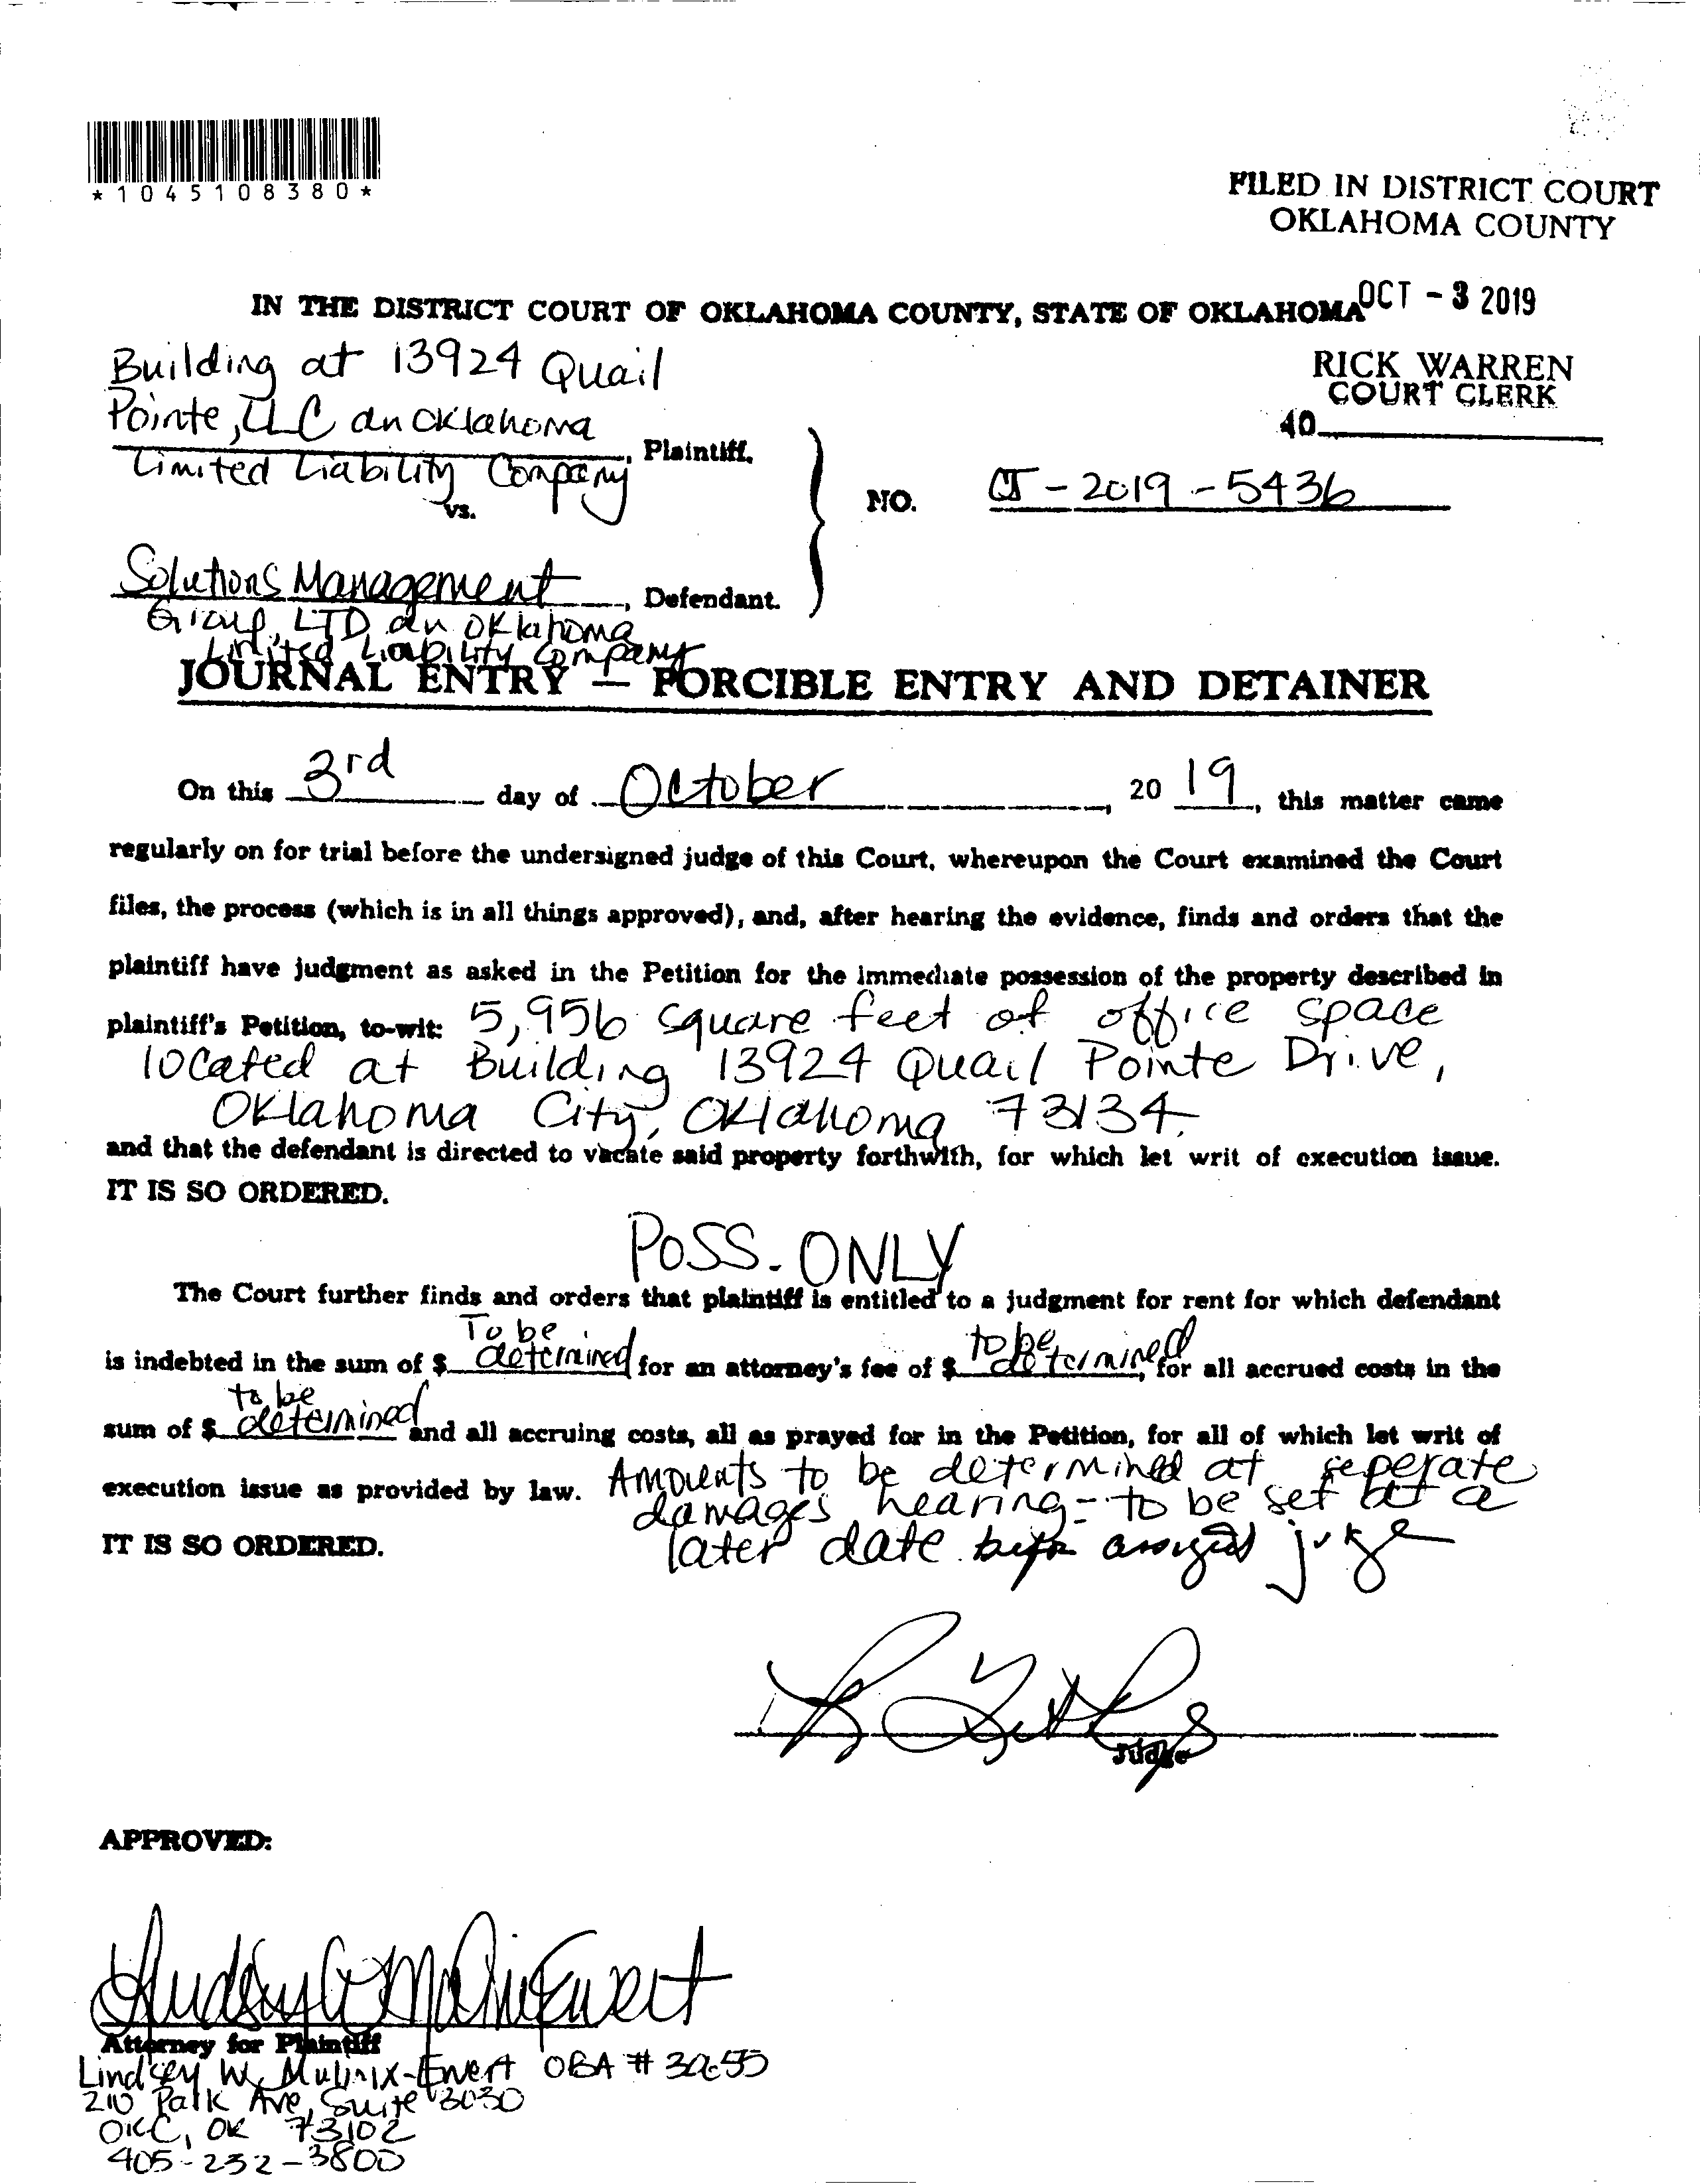 *1045108380*
FILED IN DISTRICT COURT
OKLAHOMA COUNTY
IN THE DISTRICT COURT OF OKLAHOMA COUNTY, STATE OF OKLAHOMA
OCT - 3 2019
RICK WARREN
COURT CLERK
40
Building at 13924 Quail
Pointe, LLC an Oklahoma
Limited Liability Company
, Plaintiff,
vs.
NO. CJ-2019-5436
Solutions Management
, Defendant.
Group, LTD an Oklahoma
Limited Liability Company
JOURNAL ENTRY — FORCIBLE ENTRY AND DETAINER
On this 3rd day of October, 20 19, this matter came
regularly on for trial before the undersigned judge of this Court, whereupon the Court examined the Court
files, the process (which is in all things approved), and, after hearing the evidence, finds and orders that the
plaintiff have judgment as asked in the Petition for the immediate possession of the property described in
plaintiff's Petition, to-wit: 5,956 square feet of office space
located at Building 13924 Quail Pointe Drive,
Oklahoma City, Oklahoma 73134.
and that the defendant is directed to vacate said property forthwith, for which let writ of execution issue.
IT IS SO ORDERED.
POSS. ONLY
The Court further finds and orders that plaintiff is entitled to a judgment for rent for which defendant
is indebted in the sum of $ To be determined for an attorney's fee of $ to be determined, for all accrued costs in the
sum of $ to be determined and all accruing costs, all as prayed for in the Petition, for all of which let writ of
execution issue as provided by law. Amounts to be determined at seperate
damages hearing - to be set at a
IT IS SO ORDERED. later date before assigned judge
Judge
APPROVED:
Attorney for Plaintiff
Lindsey W. Mulinix-Ewert OBA #
210 Park Ave, Suite 3030
OKC, OK 73102
405-232-3800